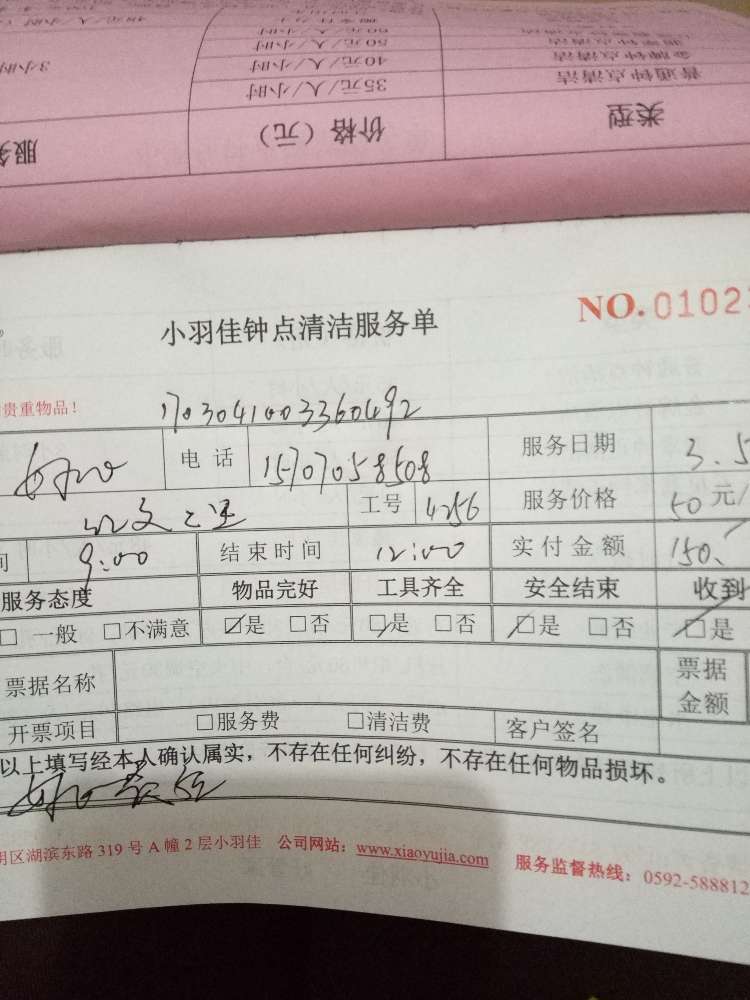 类型 价格（元） 服务
普通钟点清洁 35元/人/小时
金牌钟点清洁 40元/人/小时 3小时
50元/人/小时
小羽佳钟点清洁服务单 NO.0102
贵重物品！
1703041003360492
电话 15707058508 服务日期 3.5
工号 4256 服务价格 50元/
间 9:00 结束时间 12:00 实付金额 150.
服务态度 物品完好 工具齐全 安全结束 收到
□一般 □不满意 ☑是 □否 ☑是 □否 ☑是 □否 ☑是
票据名称 票据金额
开票项目 □服务费 □清洁费 客户签名
以上填写经本人确认属实，不存在任何纠纷，不存在任何物品损坏。
明区湖滨东路319号A幢2层小羽佳 公司网站：www.xiaoyujia.com 服务监督热线：0592-588812